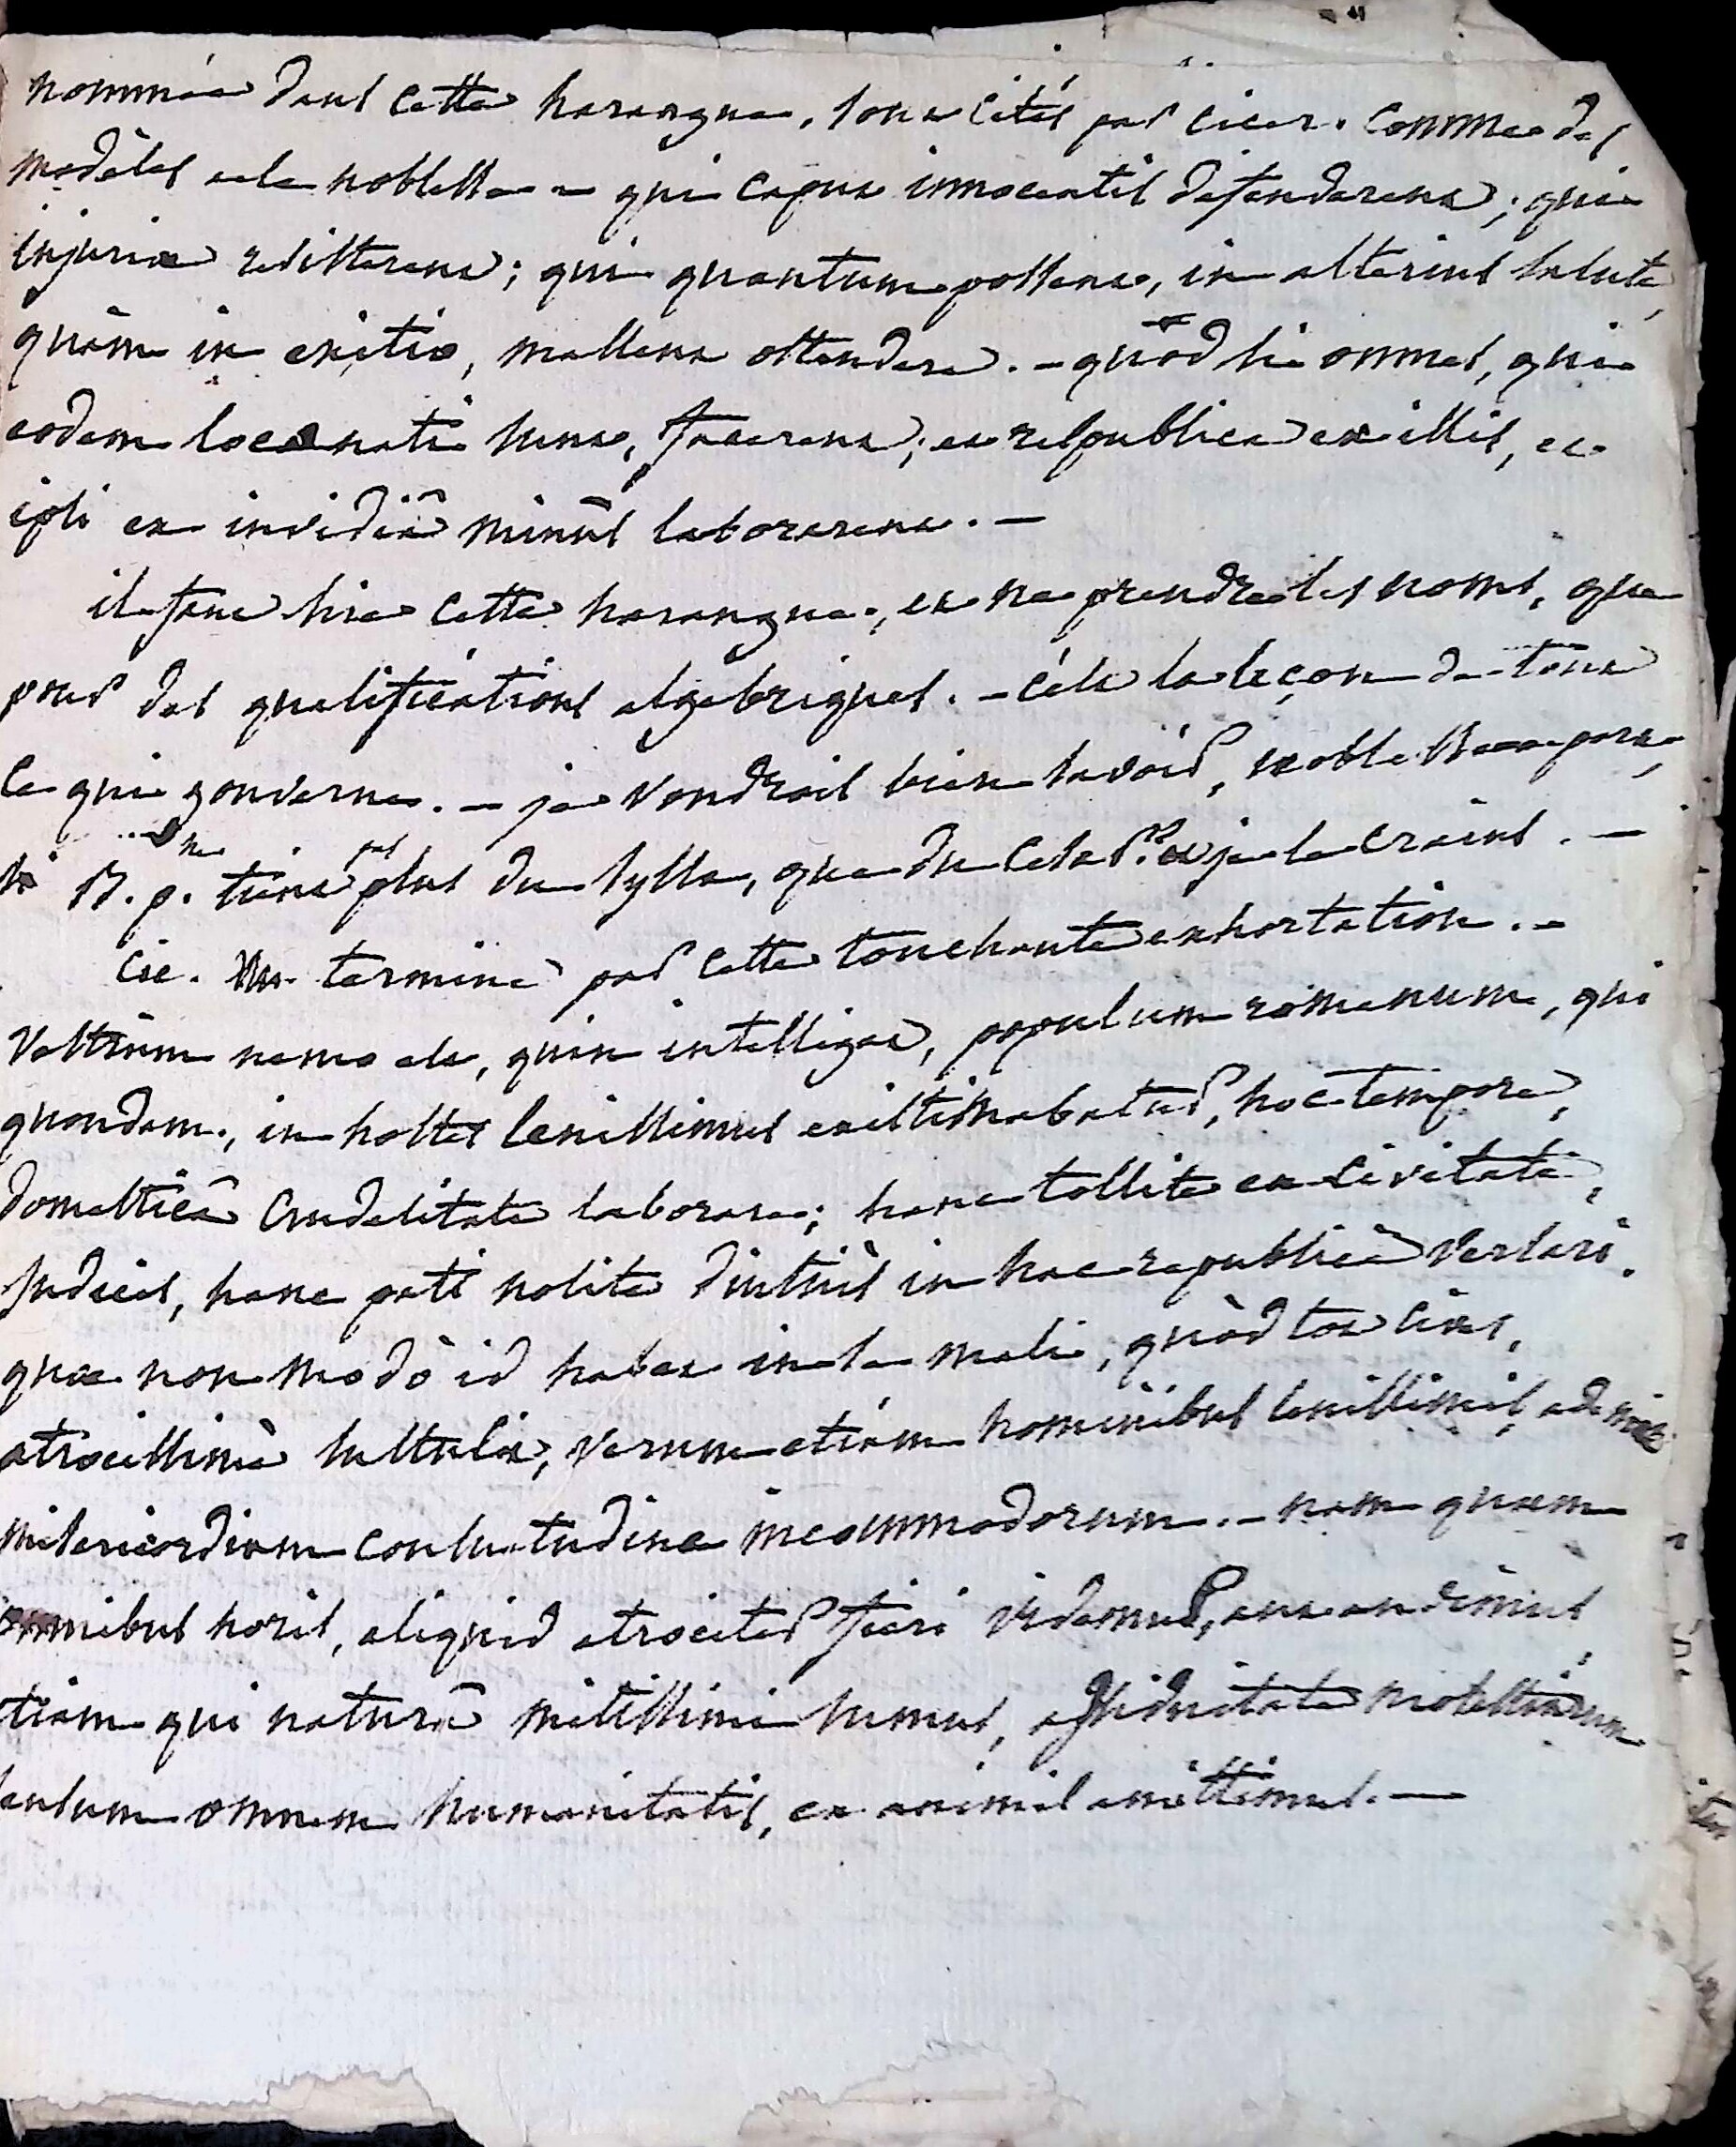 nommés dans cette harangue, sont cités par cicer. comme des
modèles à la noblesse – qui caput innocentis defenderent ; qui
injuriæ resisterent ; qui quantum possent, in alterius salute,
quàm in exitio, mallent ostendere. – quòd si omnes, qui
eodem loco nati sunt, facerent ; et respublica ex illis, et
ipsi ex invidiâ minùs laborarent. –
il faut lire cette harangue, et ne prendre les noms, que
pour des qualifications algébriques. – c'est la leçon de tout
ce qui gouverne. – je voudrais bien savoir,
si B. p. ne tient pas plus de sylla, que de cesar ? et je le crains. –
cic. termine par cette touchante exhortation. –
Vestrûm nemo est, quin intelligat, populum romanum, qui
quondam, in hostes lenissimus existimabatur, hoc tempore,
domesticâ crudelitate laborare ; hanc tollite ex civitate,
judices, hanc pati nolite diutiùs in hac republicâ versari.
quæ non modò id habet in se mali, quòd tot cives,
atrocissimè sustulit, verum etiàm hominibus lenissimis, ademit
misericordiam consuetudine incommodorum. – nam quum
omnibus horis, aliquid atrociter fieri videmus, aut audimus,
etiam qui naturâ mitissimi sumus, assiduitate molestiarum
sensum omnem humanitatis, ex animis amittimus. –